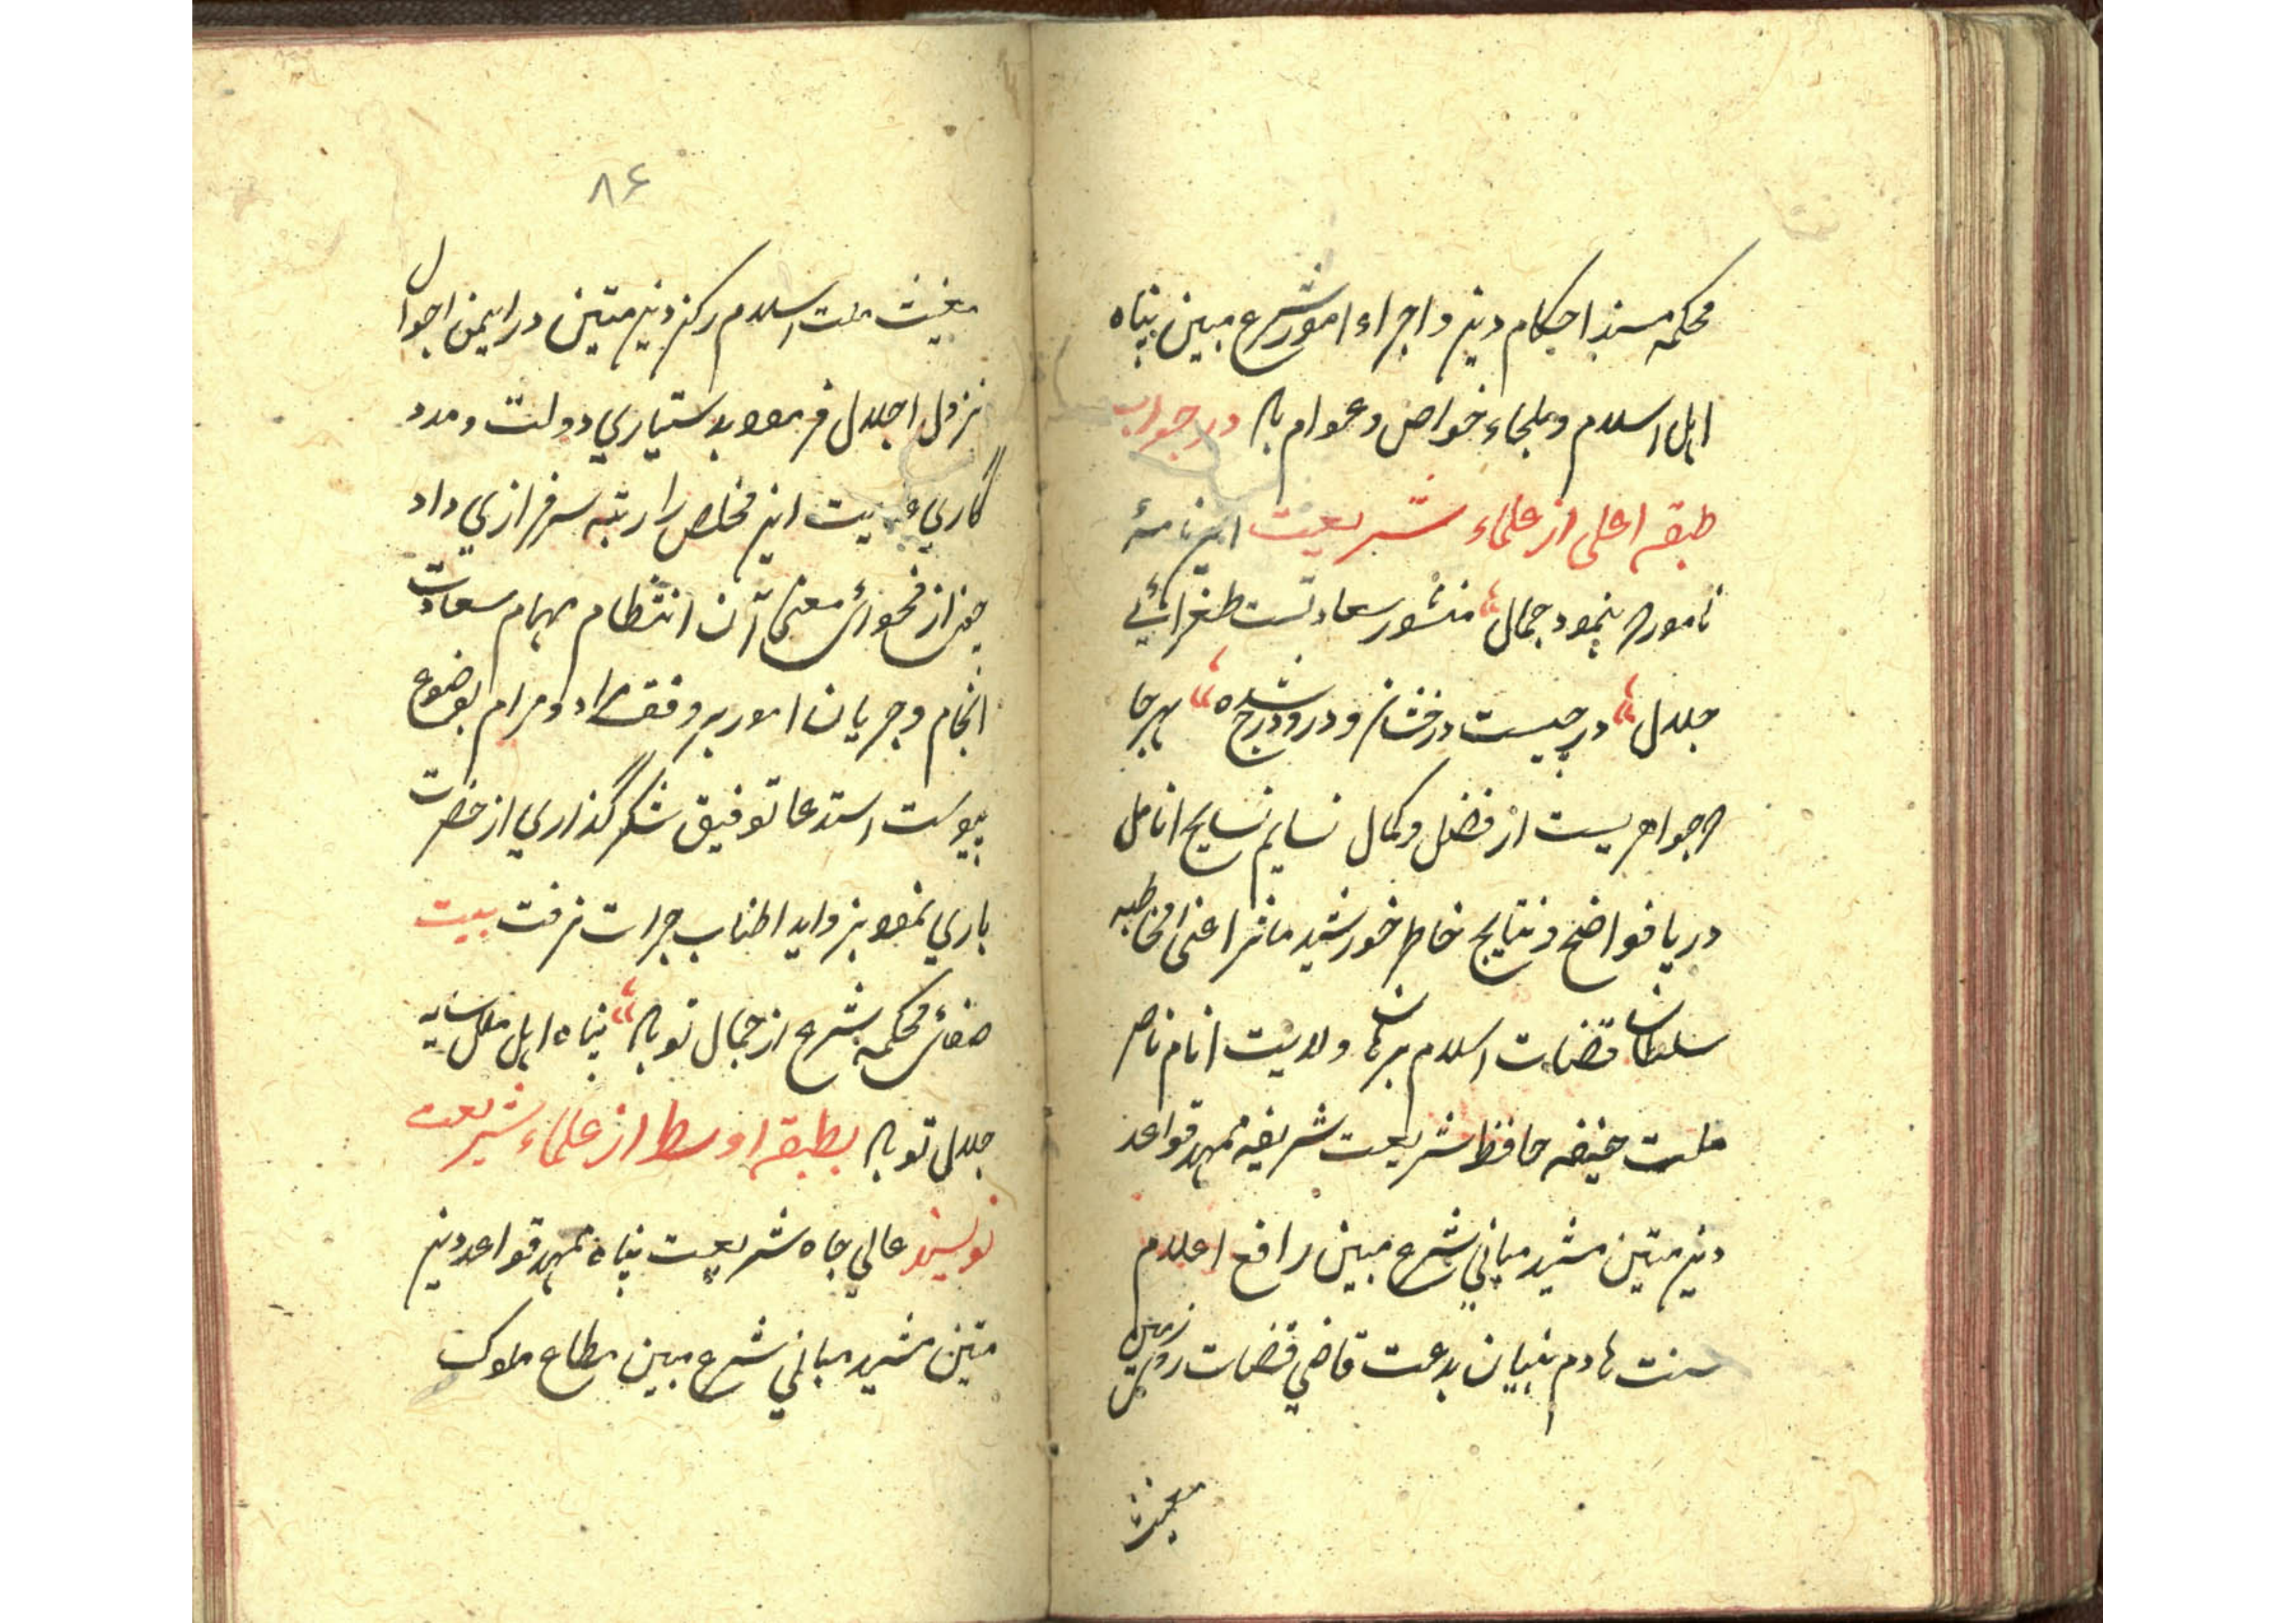 محکمه مسند احکام دین و اجراء امور شرع مبین پناه
اهل اسلام و ملجاء خواص و عوام به در جواب
طبقه اعلی از علماء شریعت این نامهٔ
نامور که بنمود جمال منشور سعادتست طغرائی
جلال درجیست درخشان و در و درج شده هر جا
که جواهریست از فضل و کمال نسایم نسایج انامل
دریا فواضح و نتایج خاطر خورشید ماثر اعنی مخاطبه
سلطان قضات اسلام برهان ولایت انام ناصر
ملت حنیفه حافظ شریعت شریفه ممهد قواعد
دین متین مشید مبانی شرع مبین رافع اعلام
سنت هادم بنیان بدعت قاضی قضات روی زمین
مغیث
۸۶
مغیث ملت اسلام رکن دین متین در ایمن احوال
نزول اجلال فرموده بدستیاری دولت و مدد
گاری این مخلص را رتبه سرفرازی داد
چون از فحوائ معنی آن انتظام مهام سعادت
انجام و جریان امور بر وفق مراد و مرام بوضوع
پیوست استدعا توفیق شکر گذاری از حضرت
باری نموده بزواید اطناب جرات نرفت بیت
صفائ محکمه شرع از جمال تو به پناه اهل ملل سایه
جلال تو به بطبقه اوسط از علماء شریعت
نویسند عالی جاه شریعت پناه ممهد قواعد دین
متین مشید مبانی شرع مبین مطاع ملوک